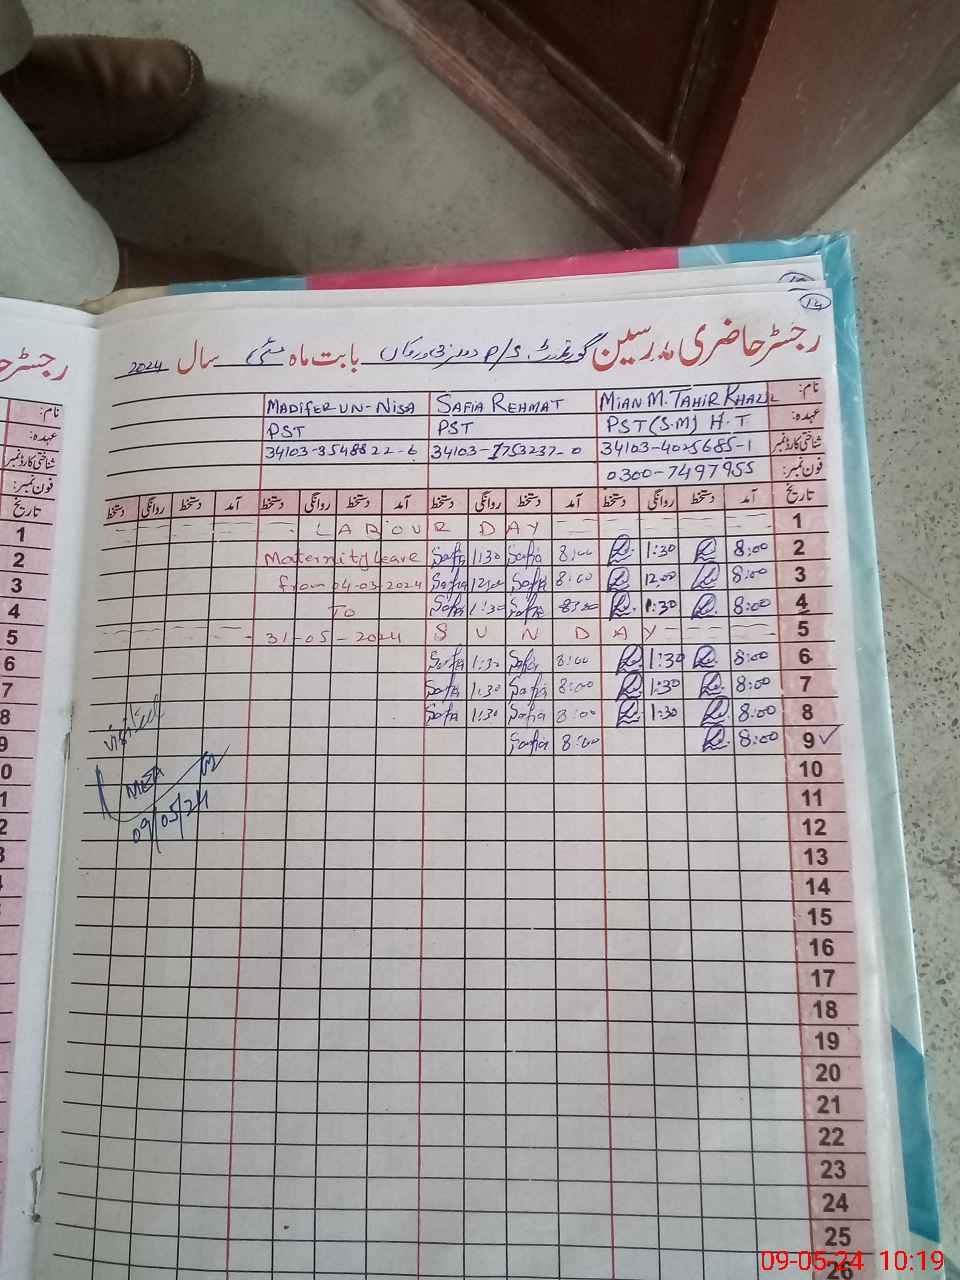 14
رجسٹر حاضری مدرسین گورنمنٹ P/S بابت ماہ مئی سال 2024
نام: MIAN M. TAHIR KHALIL SAFIA REHMAT MADIFER UN-NISA
عہدہ: PST (S.M) H.T PST PST
شناختی کارڈ نمبر 34103-4025685-1 34103-1753237-0 34103-3548822-6
فون نمبر: 0300-7497955
تاریخ آمد دستخط روانگی دستخط آمد دستخط روانگی دستخط آمد دستخط روانگی دستخط
1 LABOUR DAY
2 8:00 1:30 8:00 Safia 1:30 Safia Maternity Leave
3 8:00 12:00 8:00 Safia 12:00 Safia from 04-03-2024
4 8:00 1:30 8:00 Safia 1:30 Safia To
5 SUNDAY 31-05-2024
6 8:00 1:30 8:00 Safia 1:30 Safia
7 8:00 1:30 8:00 Safia 1:30 Safia
8 8:00 1:30 8:00 Safia 1:30 Safia
9 8:00 8:00 Safia
Visited
MEA
09/05/24
10
11
12
13
14
15
16
17
18
19
20
21
22
23
24
25
26
09-05-24 10:19